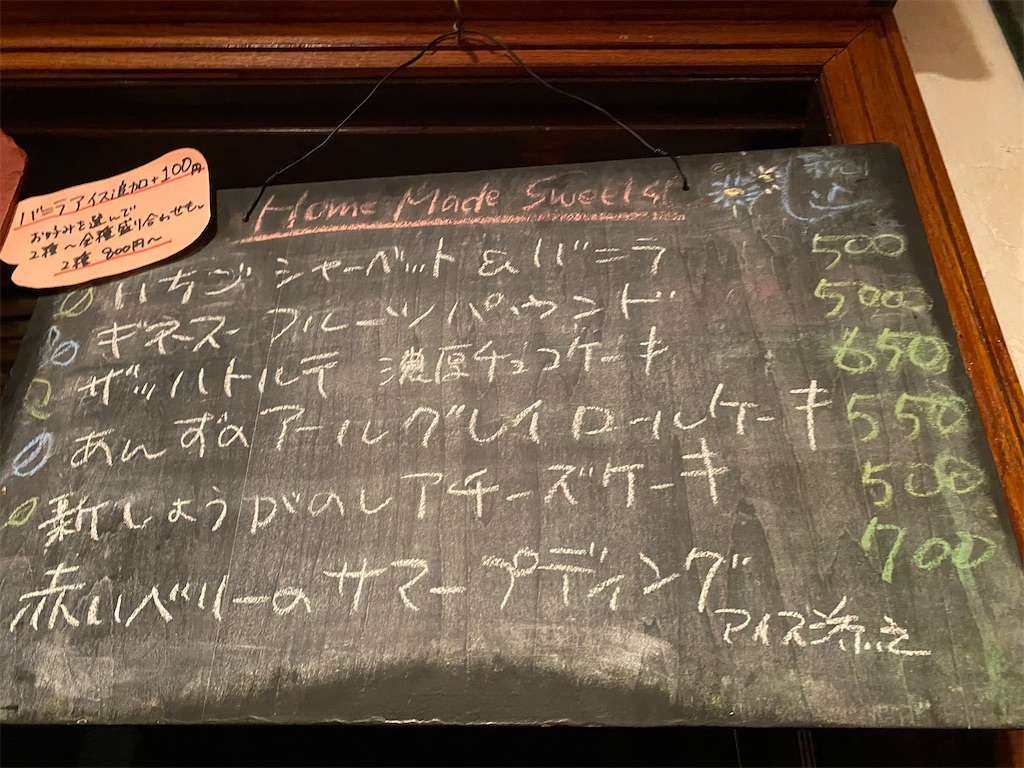 バニラアイス追加+100円
お好みを選んで
2種～全種盛り合わせも。
2種 800円～
Home Made Sweets!
税込
いちご シャーベット & バニラ 500
ギネスフルーツパウンド 500
ザッハトルテ 濃厚チョコケーキ 650
あんずのアールグレイロールケーキ 550
新しょうがのレアチーズケーキ 500
赤いベリーのサマープディング 700
アイス添え